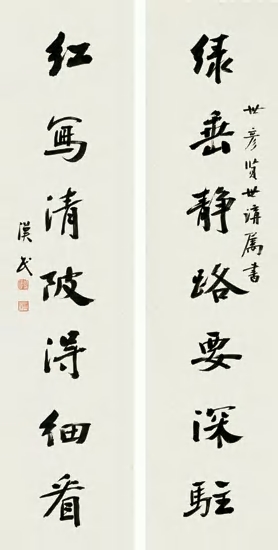 綠垂靜路要深駐
世彥賢世講屬書
紅寫清陂得細看
漢民